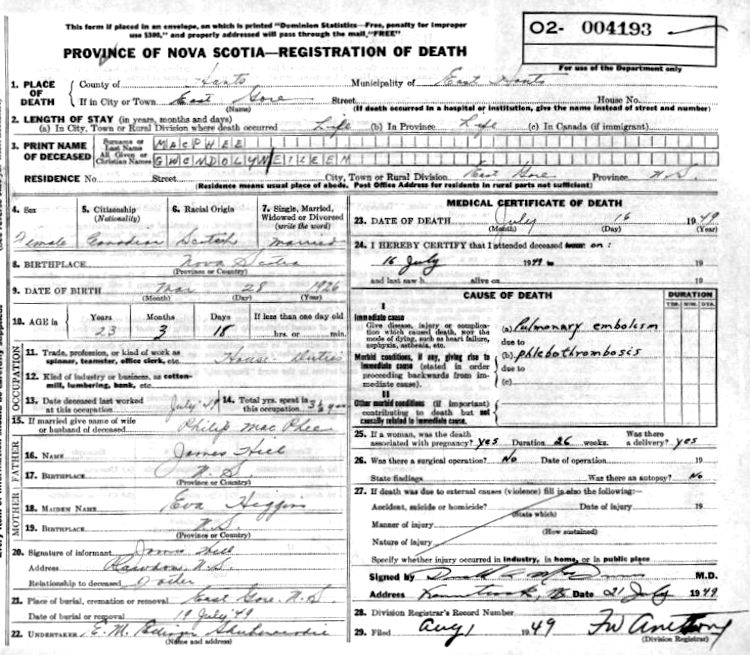 This form if placed in an envelope, on which is printed "Dominion Statistics—Free, penalty for improper
use $300," and properly addressed will pass through the mail, "FREE"
O2- 004193
For use of the Department only
PROVINCE OF NOVA SCOTIA—REGISTRATION OF DEATH
1. PLACE OF DEATH County of Hants Municipality of East Hants
If in City or Town East Gore Street House No.
(Name) (If death occurred in a hospital or institution, give the name instead of street and number)
2. LENGTH OF STAY (in years, months and days)
(a) In City, Town or Rural Division where death occurred Life (b) In Province Life (c) In Canada (if immigrant)
3. PRINT NAME OF DECEASED Surname or Last Name MACPHEE
All Given or Christian Names GWENDOLYN EILEEN
RESIDENCE No. Street City, Town or Rural Division East Gore Province N.S.
(Residence means usual place of abode. Post Office Address for residents in rural parts not sufficient)
4. Sex 5. Citizenship (Nationality) 6. Racial Origin 7. Single, Married, Widowed or Divorced (write the word)
Female Canadian Scotch Married
8. BIRTHPLACE Nova Scotia
(Province or Country)
9. DATE OF BIRTH Mar 28 1926
(Month) (Day) (Year)
10. AGE in Years Months Days If less than one day old
23 3 18 hrs. or min.
OCCUPATION
11. Trade, profession, or kind of work as spinner, teamster, office clerk, etc. House Duties
12. Kind of industry or business, as cotton-mill, lumbering, bank, etc.
13. Date deceased last worked at this occupation July '49 14. Total yrs. spent in this occupation 3½ yrs
15. If married give name of wife or husband of deceased Philip MacPhee
FATHER
16. Name James Hiel
17. Birthplace N.S.
(Province or Country)
MOTHER
18. MAIDEN NAME Eva Higgins
19. BIRTHPLACE N.S.
(Province or Country)
20. Signature of informant James
Address Rawdon, N.S.
Relationship to deceased
21. Place of burial, cremation or removal East Gore, N.S.
Date of burial or removal 19 July '49
22. UNDERTAKER E. M.
(Name and address)
MEDICAL CERTIFICATE OF DEATH
23. DATE OF DEATH July 16 1949
(Month) (Day) (Year)
24. I HEREBY CERTIFY that I attended deceased from on:
16 July 1949 to 19
and last saw h alive on 19
CAUSE OF DEATH DURATION
YRS. MOS. DYS.
I
Immediate cause
Give disease, injury or complication which caused death, not the mode of dying, such as heart failure, asphyxia, asthenia, etc.
(a) Pulmonary embolism
due to
Morbid conditions, if any, giving rise to immediate cause (stated in order proceeding backwards from immediate cause).
(b) Phlebothrombosis
due to
(c)
II
Other morbid conditions (if important) contributing to death but not causally related to immediate cause.
25. If a woman, was the death associated with pregnancy? yes Duration 26 weeks. Was there a delivery? yes
26. Was there a surgical operation? No Date of operation 19
State findings Was there an autopsy? No
27. If death was due to external causes (violence) fill in also the following:—
Accident, suicide or homicide? Date of injury 19
(State which)
Manner of injury
(How sustained)
Nature of injury
Specify whether injury occurred in industry, in home, or in public place
Signed by M.D.
Address Date 21 July 1949
28. Division Registrar's Record Number
29. Filed Aug 1 1949
(Division Registrar)